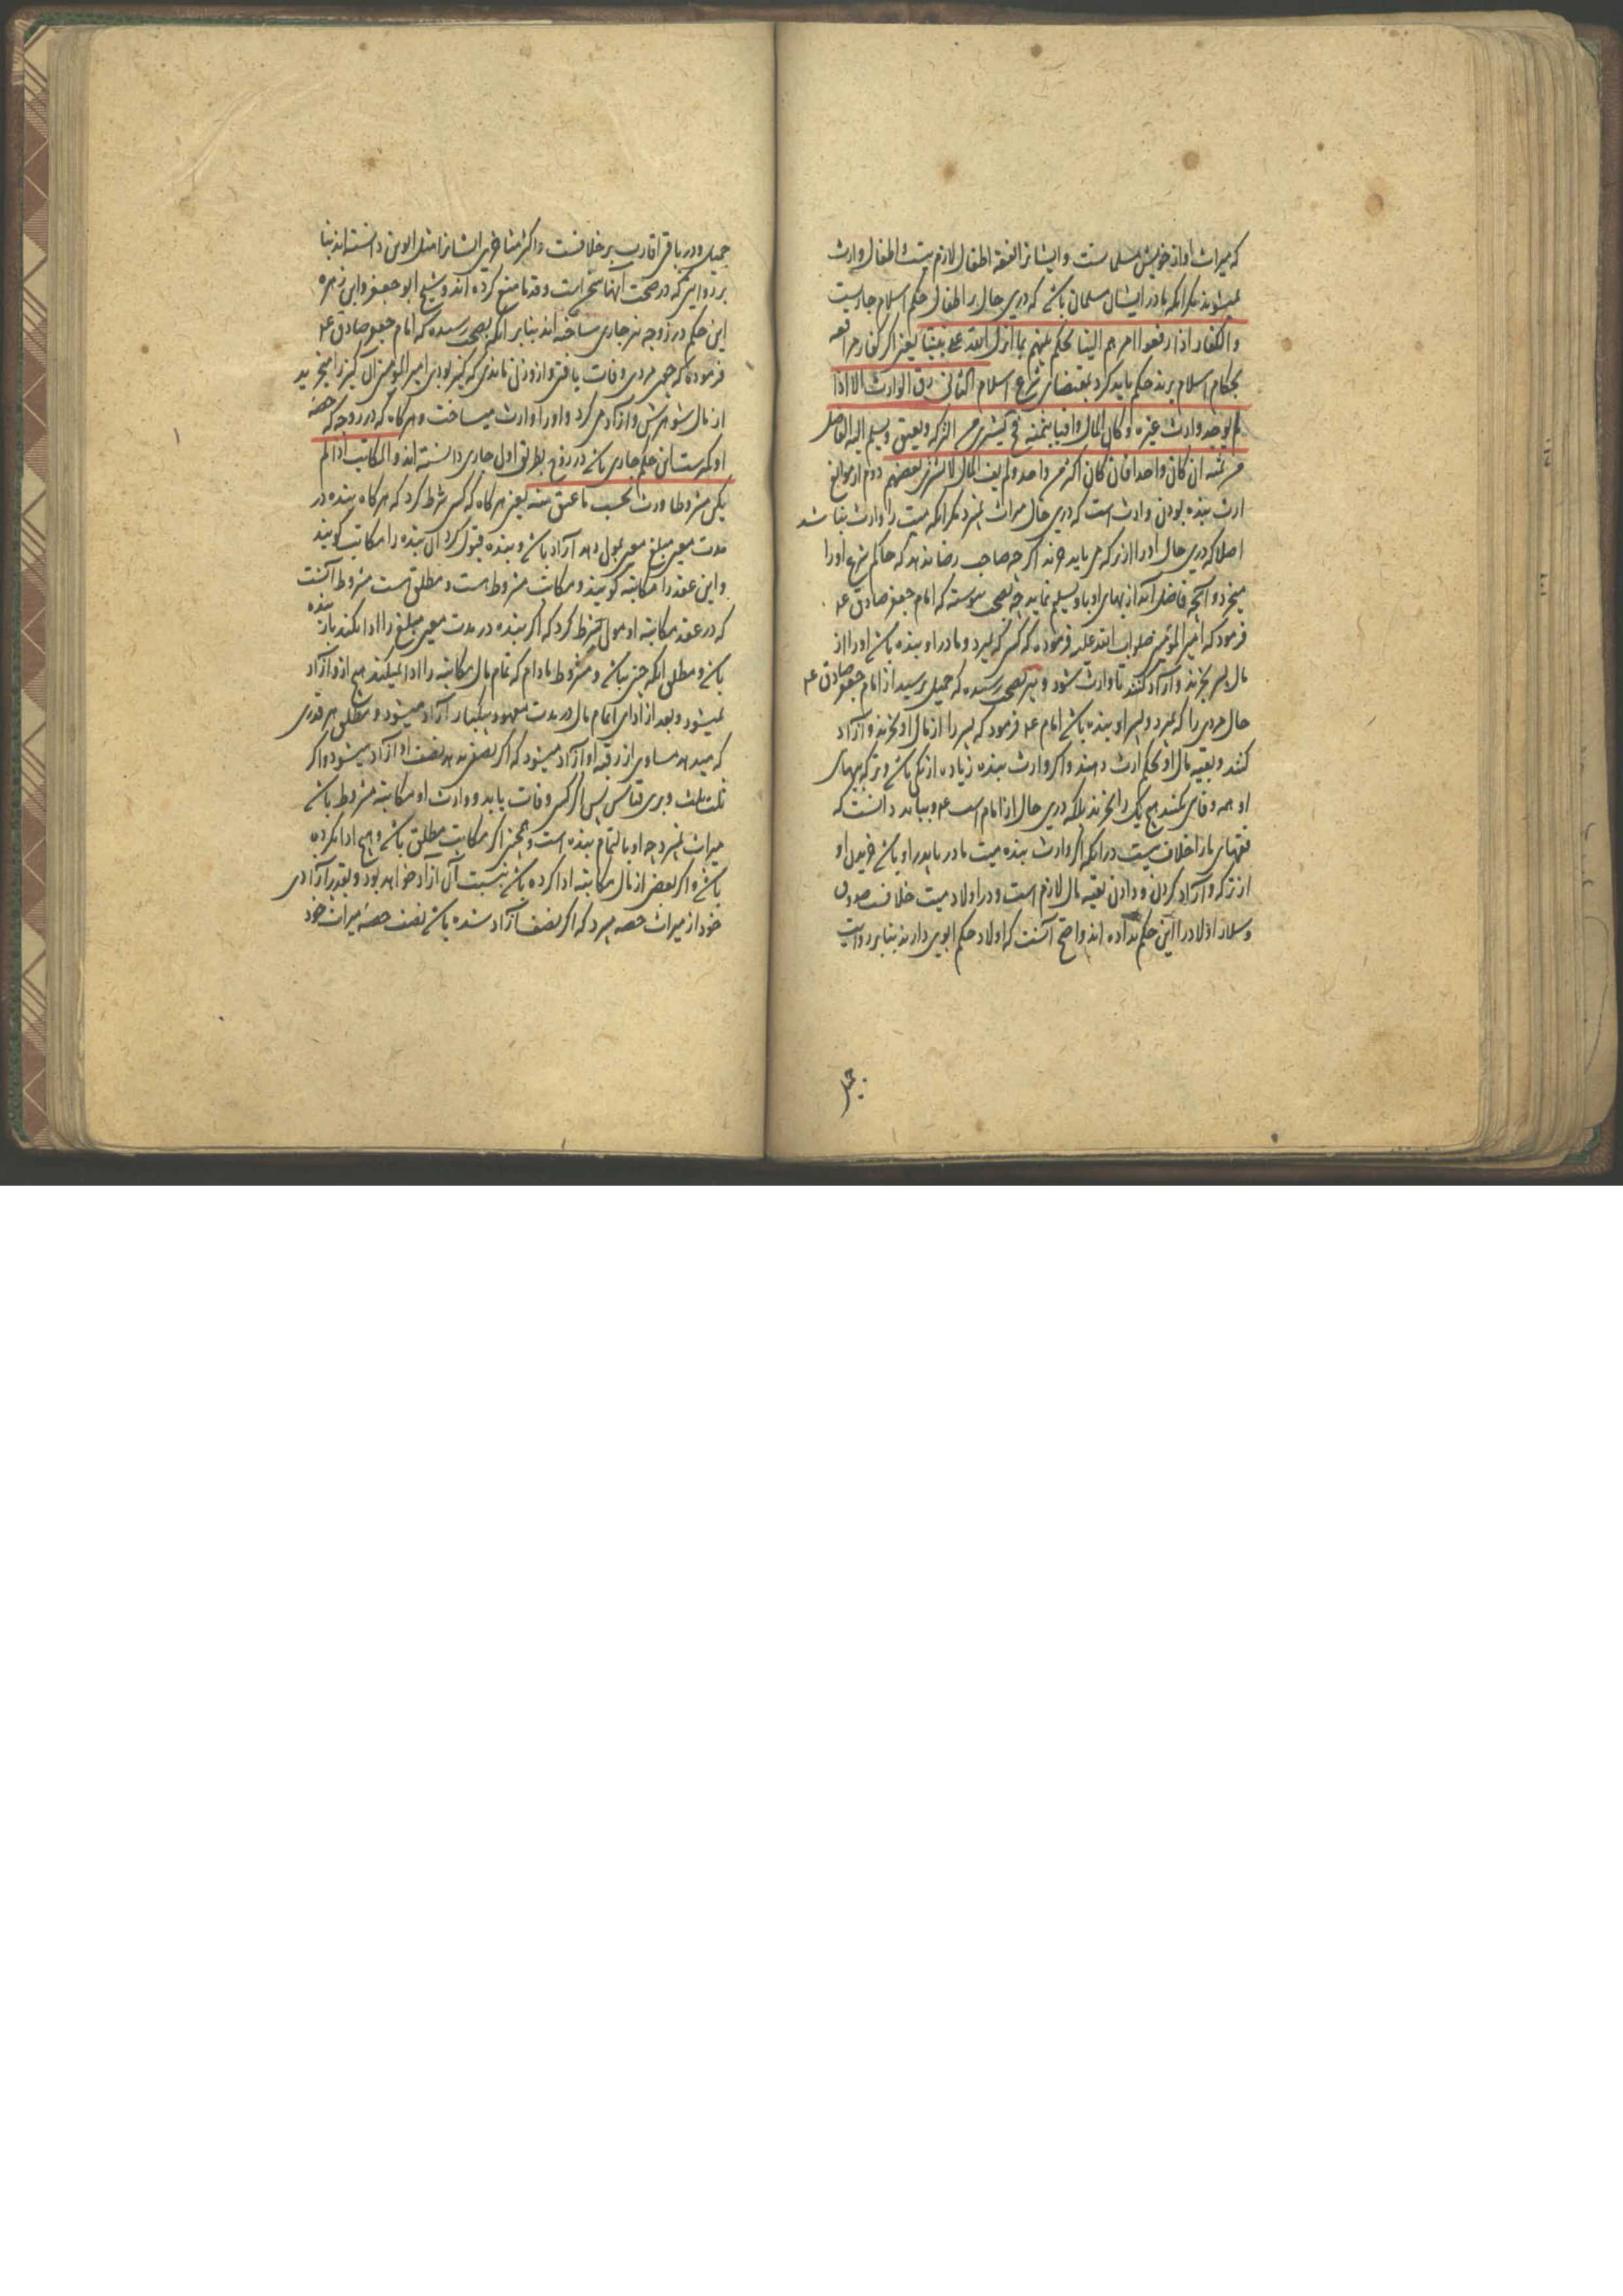 که میراث او از خویش مسلمانست و ایشانرا نفقه اطفال لازم نیست و اطفال وارث
نمیشوند مکر انکه مادر ایشان مسلمان باشد که درین حال بر اطفال حکم اسلام جاریست
والکفار اذا رفعوا امرهم الینا نحکم بینهم بما انزل الله علی نبینا یعنی اکر کفار مرافعه
بحکام اسلام برند حکم باید کرد بمقتضای شرع اسلام الثانی رق الوارث الا اذا
لم یوجد وارث غیره و کان المال وافیا بثمنه فح یشتری من الترکه و یعتق و یسلم الیه الفاضل
من ثمنه ان کان واحدا فان کان اکثر من واحد و لم یف المال لا یشتری بعضهم دوم از موانع
ارث بنده بودن وارث است که درین حال میراث نمیبرد مکر انکه میت را وارث نباشد
اصلا که درین حال او را از ترکه می باید خرند اکرچه صاحب رضا ندهد که حاکم شرع او را
میخرد و انچه فاضل آید از بهای او باو تسلیم نماید چه بصحت پیوسته که امام جعفر صادق ع
فرمود که امیر المؤمنین صلوات الله علیه فرموده که کسی که بمیرد و مادر او بنده باشد او را از
مال پسر بخرند و آزاد کنند تا وارث شود و نیز بصحت رسیده که جمیل پرسید از امام جعفر صادق ع
حال مردی را که بمیرد و پسر او بنده باشد امام ع فرمود که پسر را از مال او بخرند و آزاد
کنند و بقیه مال او بحکم ارث دهند و اکر وارث بنده زیاده از یکی باشد و ترکه ببهای
او همه وفا نکند هیچ یک را نخرند بلکه درین حال از امام است ع و بباید دانست که
فقهای ما را خلاف نیست در انکه اکر وارث بنده میت مادر یا پدر او باشد خریدن او
از ترکه و آزاد کردن و دادن بقیه مال لازم است و در اولاد میت خلافست صدوق
و سلار اولاد را این حکم نداده اند واضح آنست که اولاد حکم ابوین دارند بنابر روایت
جمیل
جمیل و در باقی اقارب بر خلافست و اکثر متاخرین ایشانرا مثل ابوین دانسته اند بنا
بر روایتی که در صحت آنها سخن است و قدما منع کرده اند و شیخ ابو جعفر و ابن زهره
این حکم در زوجه نیز جاری ساخته اند بنابر انکه بصحت رسیده که امام جعفر صادق ع
فرموده که چون مردی وفات یافتی و ازو زنی ماندی که کنیز بودی امیر المؤمنین آن کنیز را میخرید
از مال شوهرش و آزاد می کرد و او را وارث میساخت و هرکاه که در زوجه که حصه
او کمترست این حکم جاری باشد در زوج بطریق اولی جاری دانسته اند والمکاتب اذا لم
یکن مشروطا ورث بحسب ما عتق منه یعنی هرکاه که کسی شرط کرد که هرکاه بنده در
مدت معین مبلغ معین بمولی دهد آزاد باشد و بنده قبول کرد آن بنده را مکاتب کویند
و این عقد را مکاتبه کویند و مکاتب مشروط است و مطلق است مشروط آنست
که در عقد مکاتبه او مولی شرط کرد که اکر بنده در مدت معین مبلغ را ادا نکند باز بنده
باشد و مطلق انکه چنین نباشد و مشروط مادام که تمام مال مکاتبه را ادا نمیکند هیچ ازو آزاد
نمیشود و بعد از ادای تمام مال در مدت معهود بیکبار آزاد میشود و مطلق هر قدری
که میدهد مساوی از رقبه او آزاد میشود که اکر نصفی دهد نصف او آزاد میشود و اکر
ثلث ثلث و برین قیاس پس اکر کسی وفات یابد و وارث او مکاتبه مشروط باشد
میراث نمیبرد چه او بالتمام بنده است و همچنین اکر مکاتب مطلق باشد و هیچ ادا نکرده
باشد و اکر بعضی از مال مکاتبه ادا کرده باشد بنسبت آن آزاد خواهد بود و بقدر آزادی
خود از میراث حصه میبرد که اکر نصف آزاد شده باشد نصف حصه میراث خود